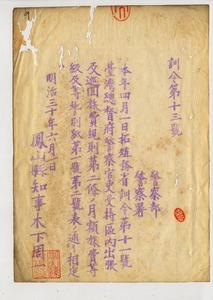 訓令第十三號
警察部
警察署
本年四月一日拓殖務省訓令第十一號
臺灣總督府警察官吏受持區内出張
及巡回旅費規則第一條ノ月額旅費等
級及等差別紙第一號第二號表ノ通リ相定
明治三十年六月一日
鳳山縣知事木下周一